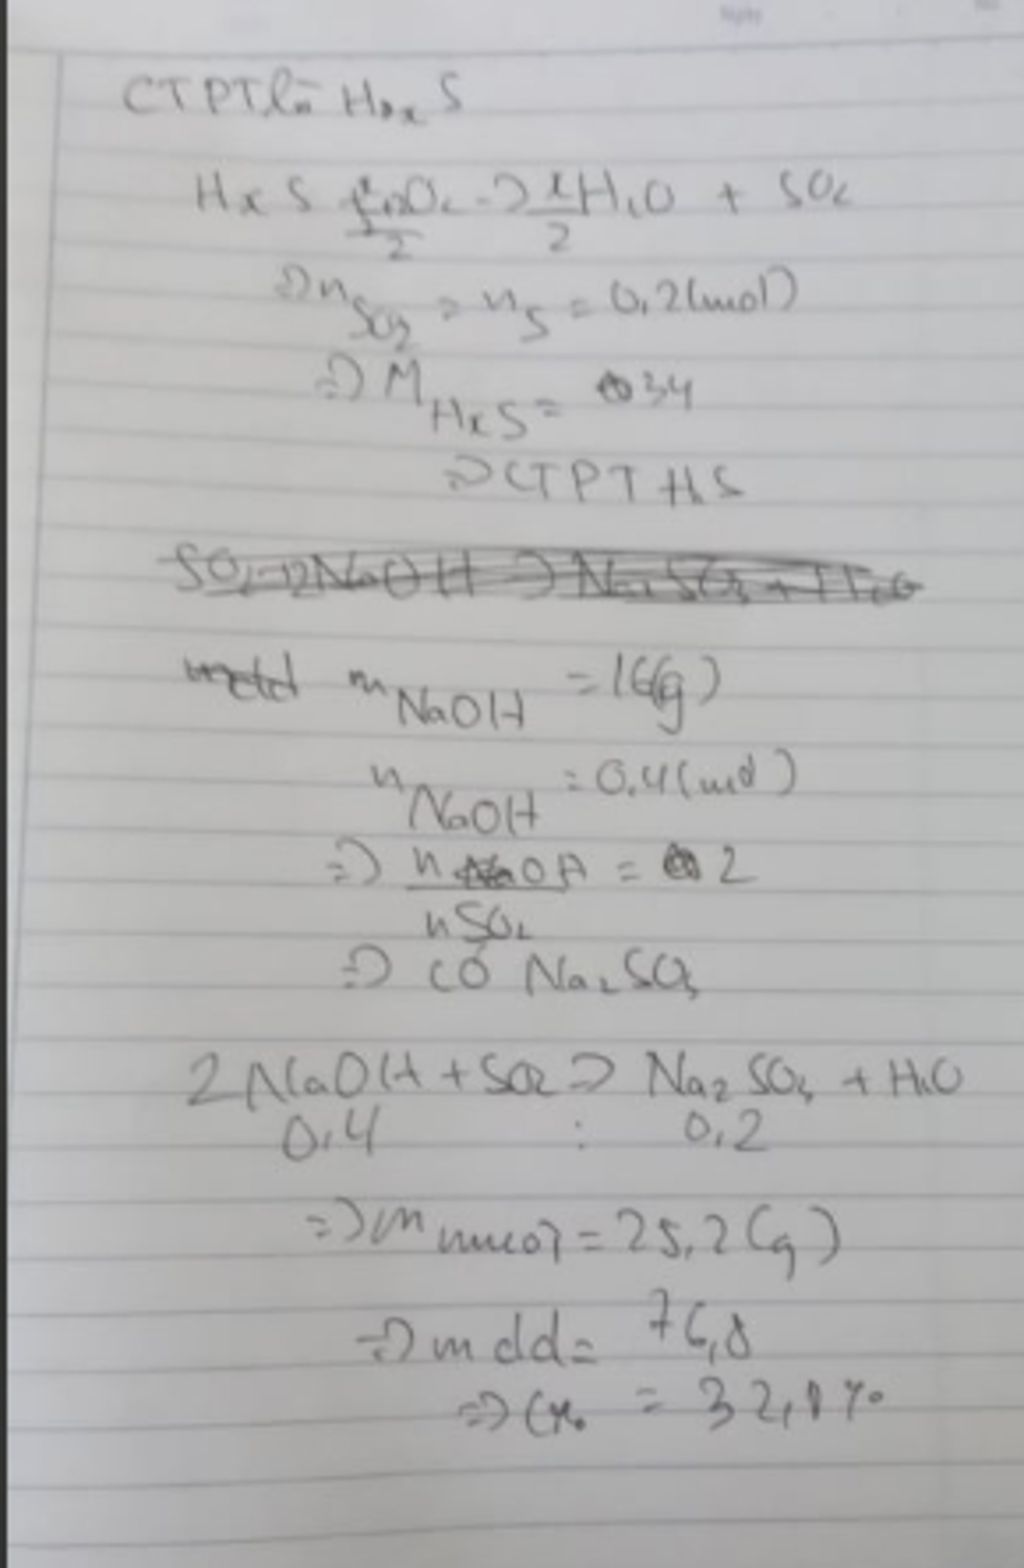 CTPT là HxS
HxS + O2 => x/2 H2O + SO2
=> nSO2 = nS = 0,2(mol)
=> M HxS = 34
=> CTPT H2S
SO2 + 2NaOH => Na2SO3 + H2O
mNaOH = 16(g)
nNaOH = 0,4(mol)
=> nNaOH = 2
nSO2
=> có Na2SO3
2NaOH + SO2 => Na2SO3 + H2O
0,4 : 0,2
=> m muối = 25,2(g)
=> mdd = 76,8
=> C% = 32,8%